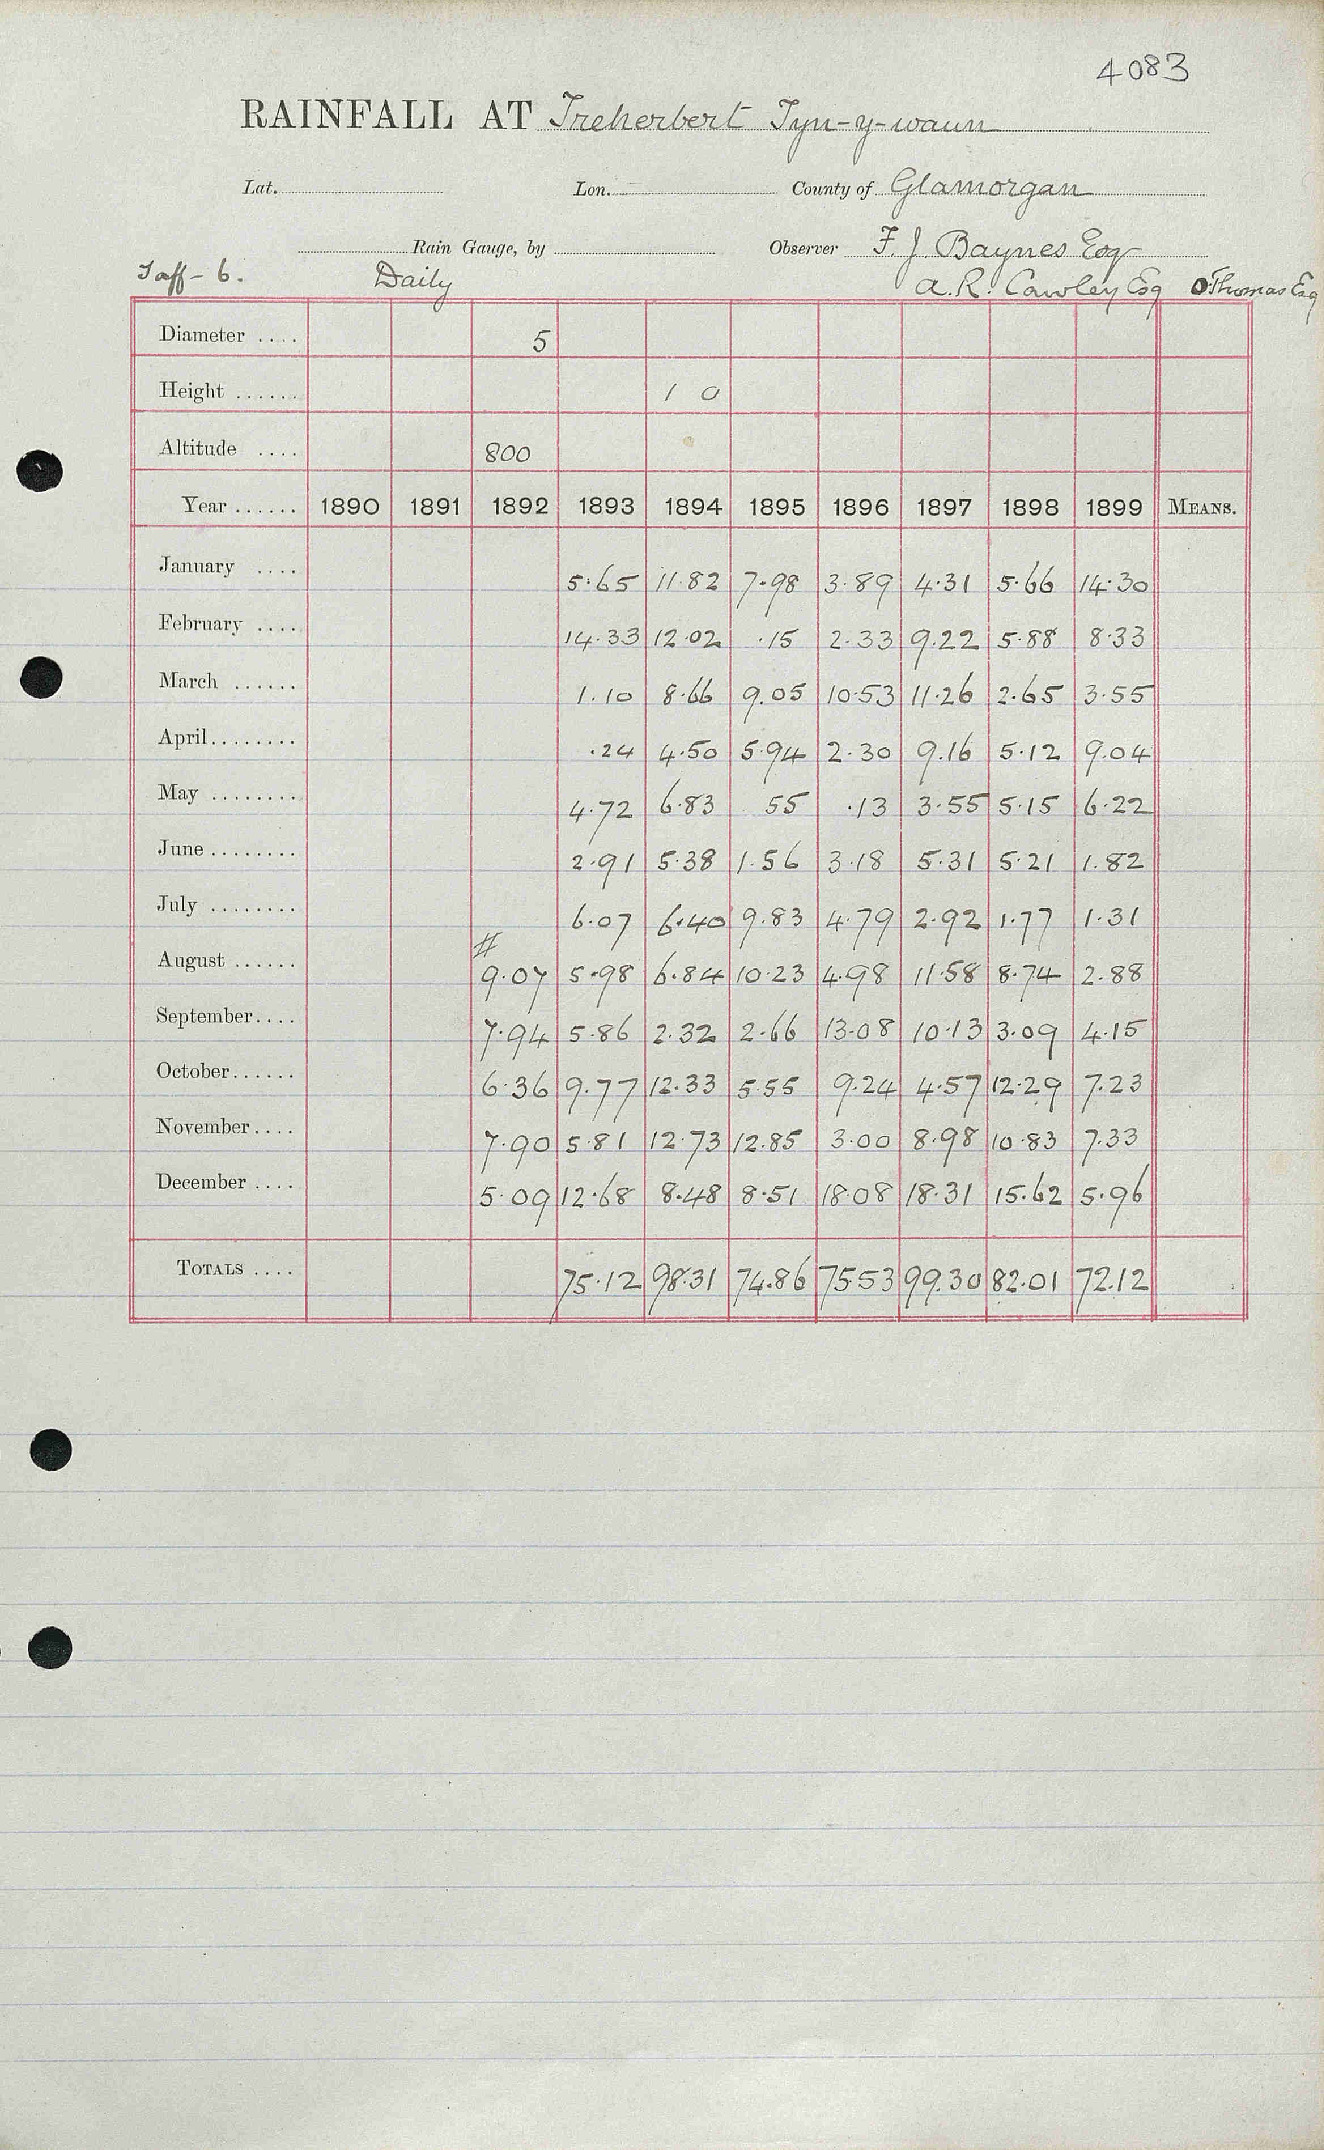 4083
RAINFALL AT Treherbert Tyn-y-waun
Lat. Lon. County of Glamorgan
Rain Gauge, by Observer F. J. Baynes Esq
Taff - 6. Daily A. R. Cawley Esq O Thomas Esq
Diameter .... 5
Height ...... 1 0
Altitude .... 800
Year ...... 1890 1891 1892 1893 1894 1895 1896 1897 1898 1899 MEANS.
January .... 5.65 11.82 7.98 3.89 4.31 5.66 14.30
February .... 14.33 12.02 .15 2.33 9.22 5.88 8.33
March ...... 1.10 8.66 9.05 10.53 11.26 2.65 3.55
April ........ .24 4.50 5.94 2.30 9.16 5.12 9.04
May ........ 4.72 6.83 55 .13 3.55 5.15 6.22
June ........ 2.91 5.38 1.56 3.18 5.31 5.21 1.82
July ........ 6.07 6.40 9.83 4.79 2.92 1.77 1.31
August ...... # 9.07 5.98 6.84 10.23 4.98 11.58 8.74 2.88
September .... 7.94 5.86 2.32 2.66 13.08 10.13 3.09 4.15
October ...... 6.36 9.77 12.33 5.55 9.24 4.57 12.29 7.23
November .... 7.90 5.81 12.73 12.85 3.00 8.98 10.83 7.33
December .... 5.09 12.68 8.48 8.51 18.08 18.31 15.62 5.96
TOTALS .... 75.12 98.31 74.86 75.53 99.30 82.01 72.12